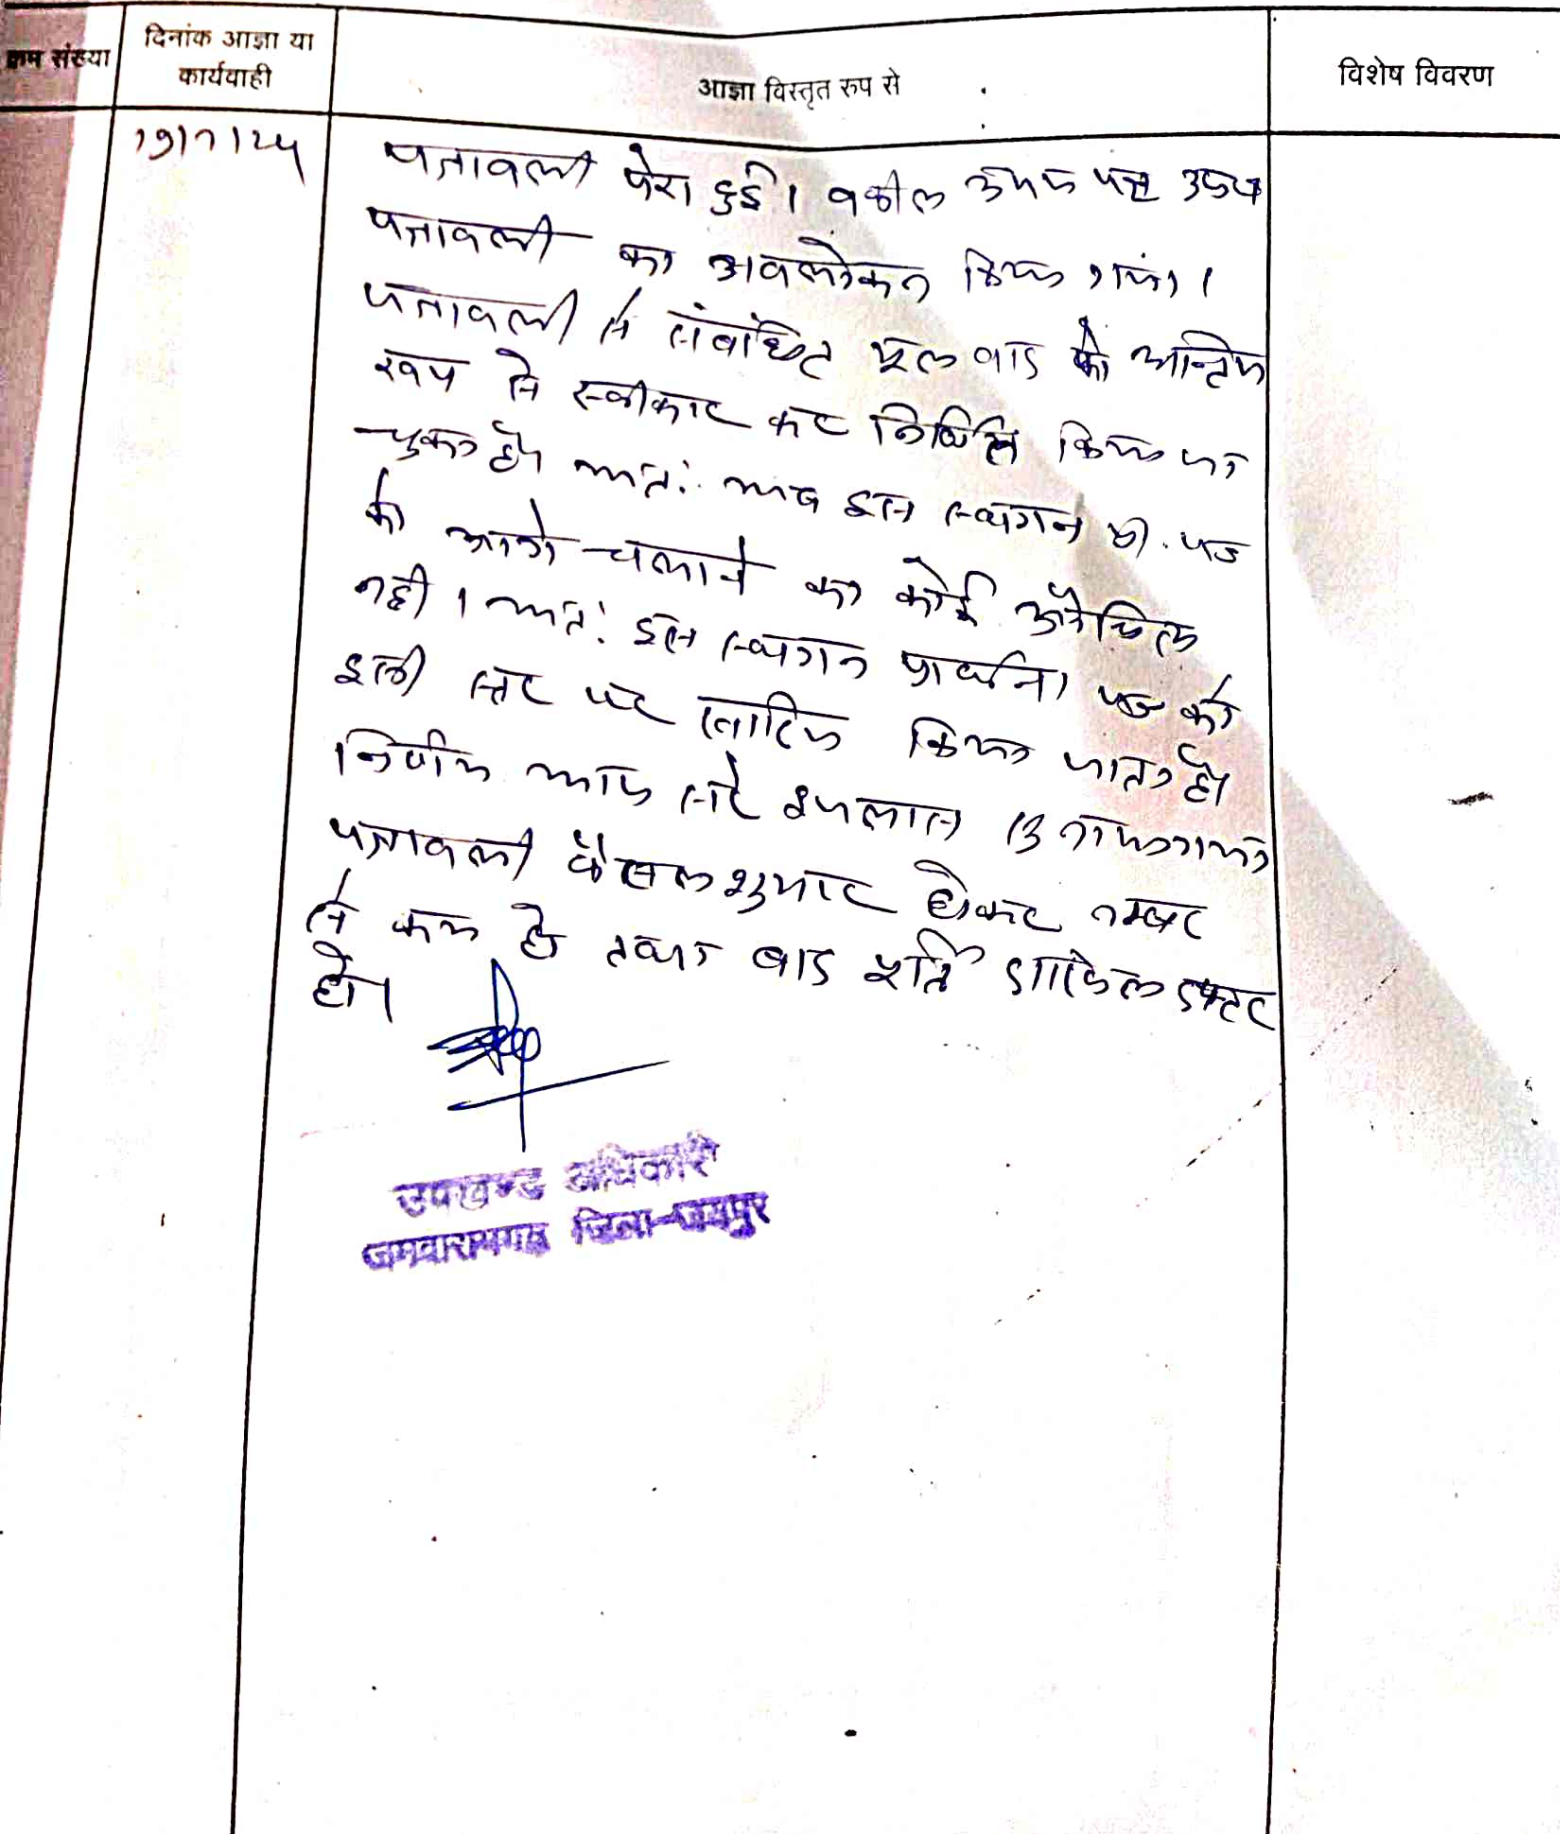 क्रम संख्या
दिनांक आज्ञा या
कार्यवाही
आज्ञा विस्तृत रुप से
विशेष विवरण
पत्रावली पेश हुई। वकील उभय पक्ष उप०
पत्रावली का अवलोकन किया गया।
पत्रावली से संबंधित मूल वाद को अन्तिम
रूप से स्वीकार कर निर्णित किया जा
चुका है। अतः अब इस स्थगन प्रा. पत्र
को आगे चलाने का कोई औचित्य
नही। अतः इस स्थगन प्रार्थना पत्र को
इसी स्तर पर खारिज किया जाता है।
निर्णय आज सरे इजलास सुनाया गया
पत्रावली फैसल शुमार होकर नम्बर
से कम हो तथा बाद पूर्ति दाखिल दफ्तर
हो।
उपखण्ड अधिकारी
जमवारामगढ जिला-जयपुर